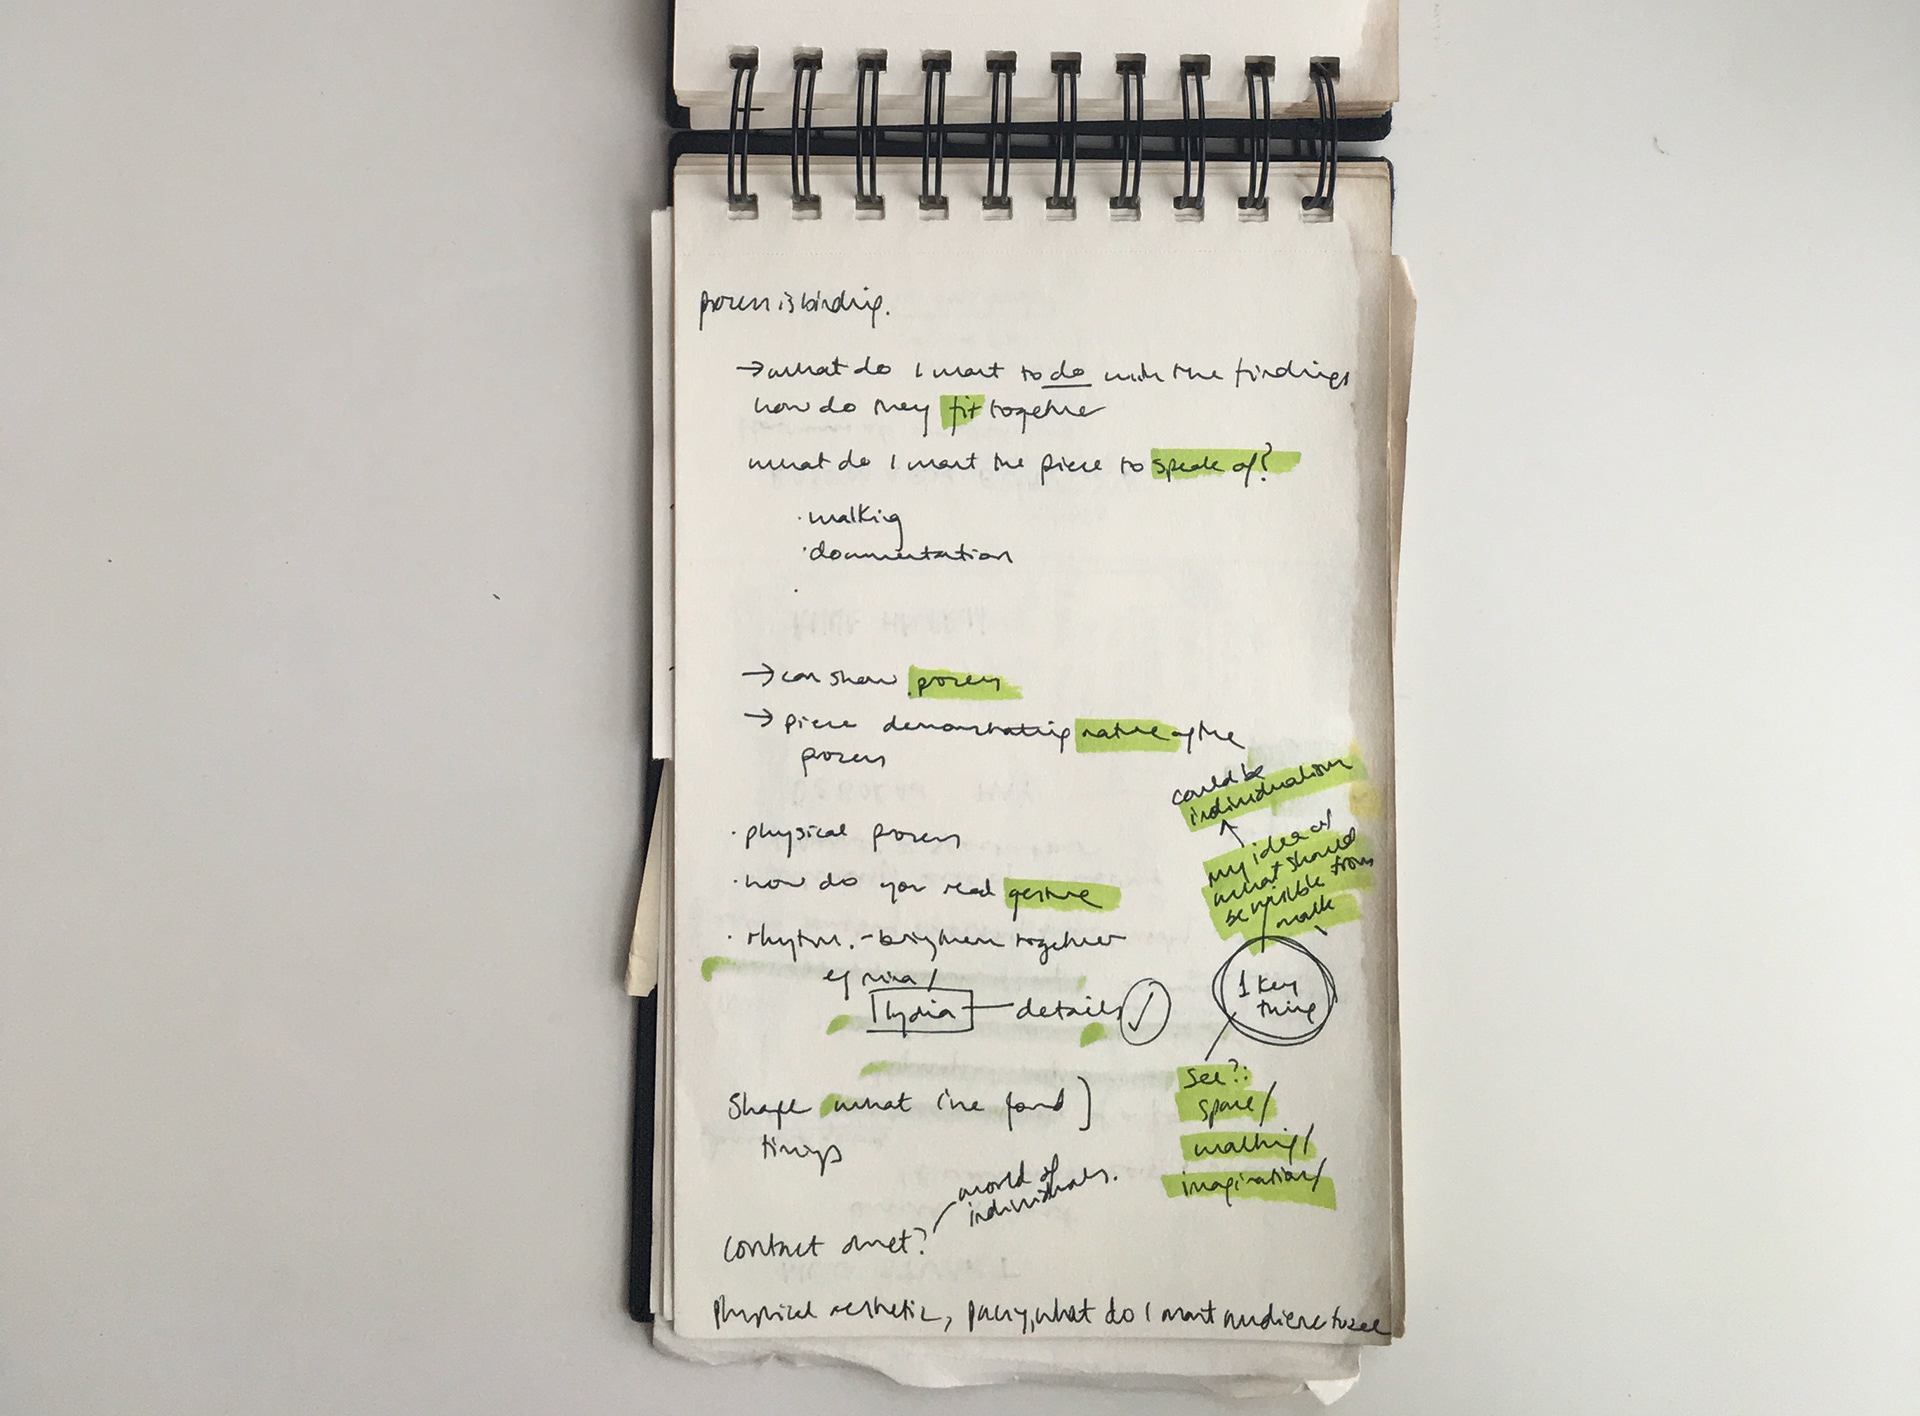 process is binding.
→ what do I want to do with the findings
how do they fit together
what do I want the piece to speak of?
· walking
· documentation
·
→ can show process
→ piece demonstrating nature of the
process
could be
individualism
my idea of
what should
be visible from
walk
· physical process
· how do you read gesture
· rhythm. - bring them together
eg nina /
lydia — details ✓
1 key
thing
see?:
space/
walking/
imagination/
shape what i've found ]
things
world of
individuals.
contact duet?
physical aesthetic, pacing, what do I want audience to see